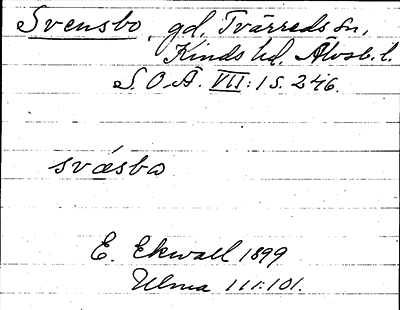 Svensbo, gd, Tvärreds sn,
Kinds hd, Älvsb. l.
S.O.Ä. VII:1 S. 246.
svǽsbo
E. Ekwall 1899
Ulma 111:101.